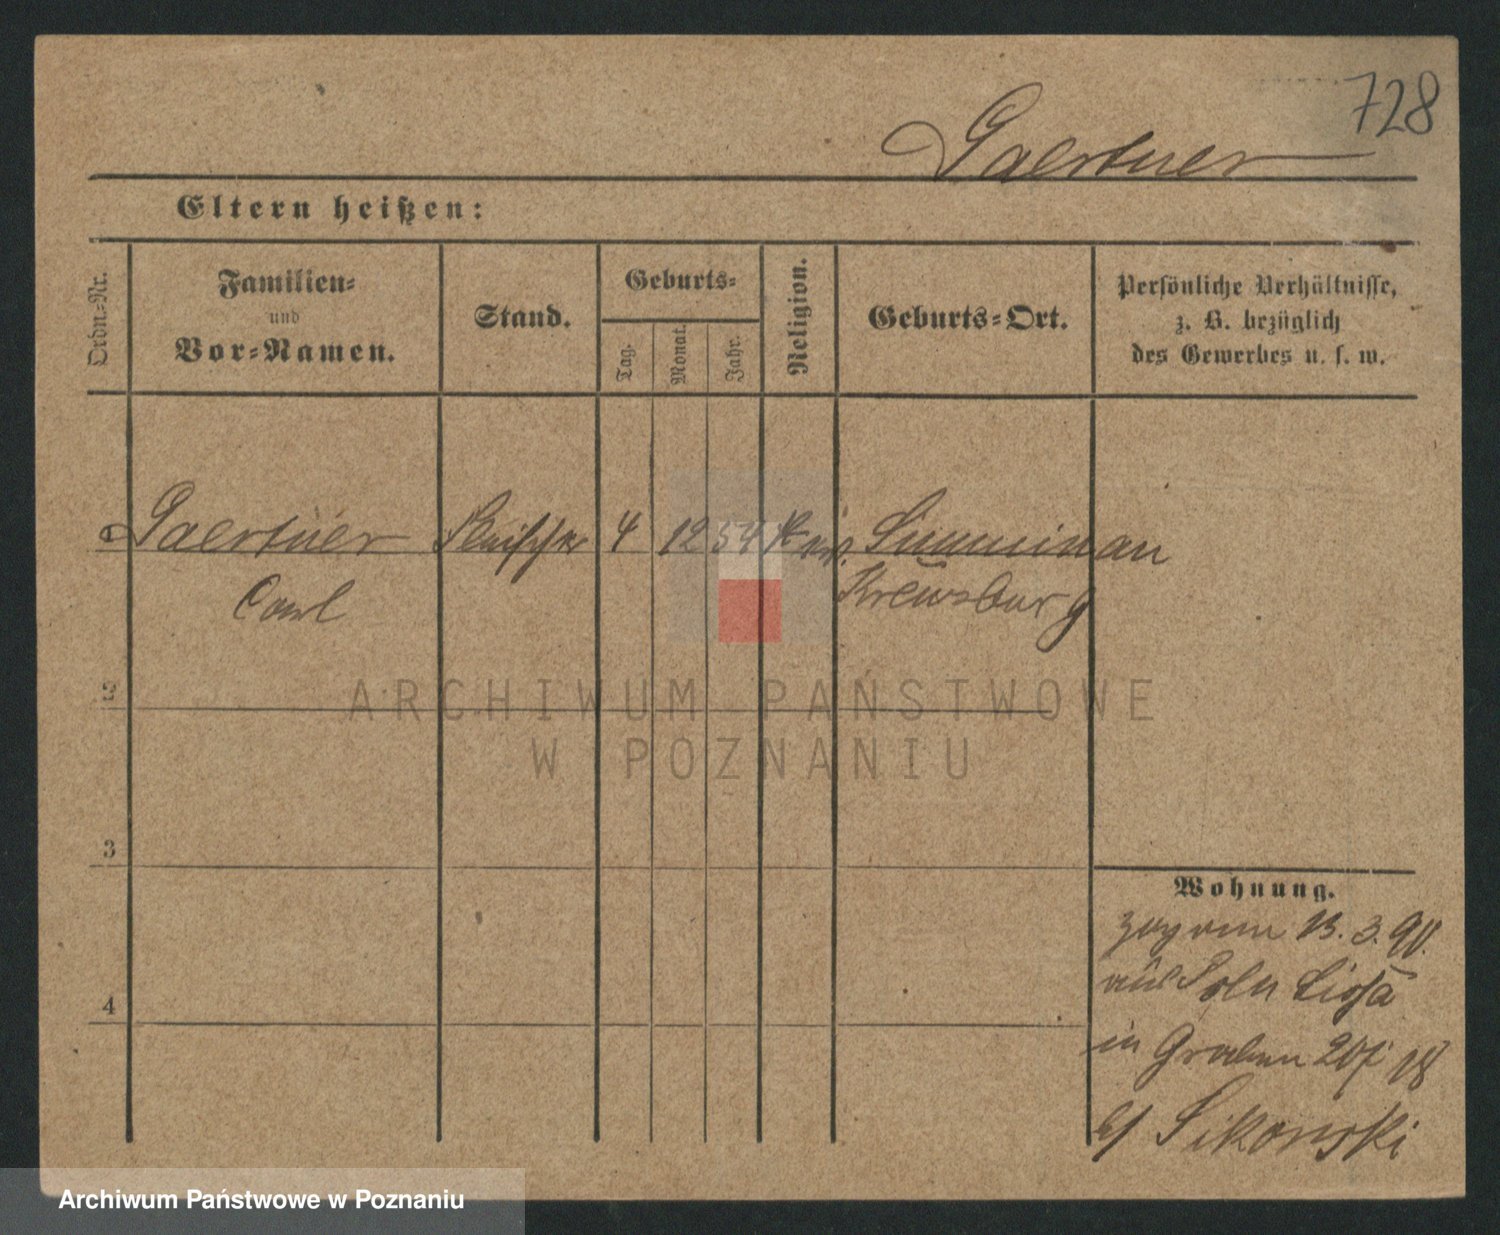 728
Gaertner
Eltern heißen:
Ordn=Nr.
Familien=
und
Vor=Namen.
Stand.
Geburts=
Tag.
Monat.
Jahr.
Religion.
Geburts=Ort.
Persönliche Verhältnisse,
z. B. bezüglich
des Gewerbes u. s. w.
1 Gaertner Fleischer 4 12 54
Carl Kreuzburg
2
ARCHIWUM PAŃSTWOWE
W POZNANIU
3
4
Wohnung.
13. 3. 90.
aus Poln Lissa
in Graben
b/ Sikorski
Archiwum Państwowe w Poznaniu